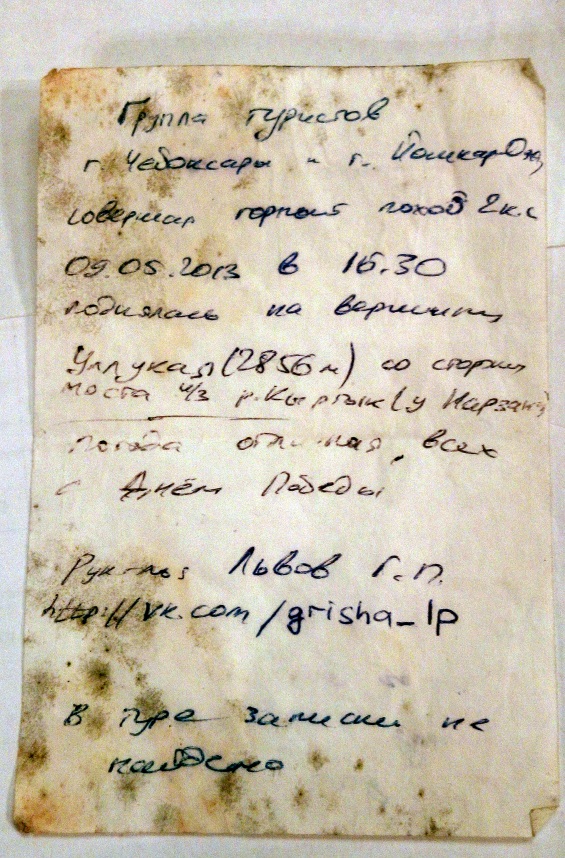 Группа туристов
г. Чебоксары и г. Йошкар Ола,
совершая горный поход 2 к.с
09.05.2013 в 16.30
поднялась на вершину
Уллукая (2856 м) со стороны
моста ч/з р. Кыртык (у Нарзана)
погода отличная, всех
с Днём Победы
Рук-ль: Львов Г.П.
http://vk.com/grisha_lp
В туре записки не
найдено